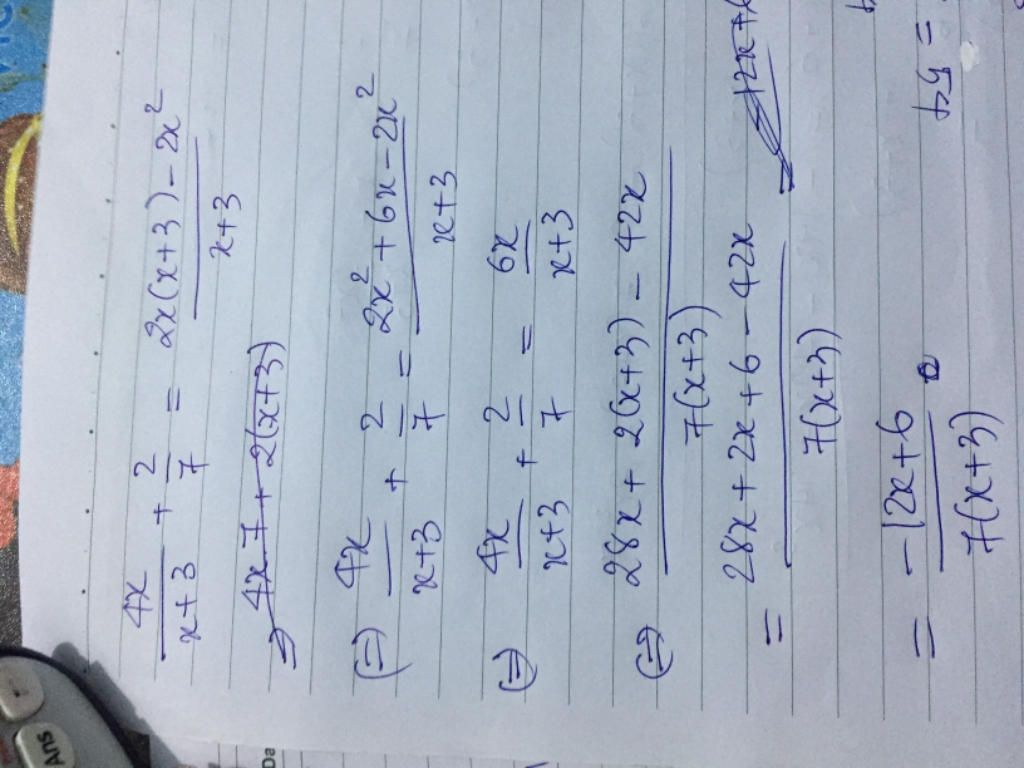 4x/(x+3) + 2/7 = (2x(x+3) - 2x²)/(x+3)
⇒ 4x 7 + 2(x+3)
(=) 4x/(x+3) + 2/7 = (2x² + 6x - 2x²)/(x+3)
(=) 4x/(x+3) + 2/7 = 6x/(x+3)
(=) (28x + 2(x+3) - 42x)/(7(x+3))
= (28x + 2x + 6 - 42x)/(7(x+3)) =
= (-12x + 6)/(7(x+3))
Ans
Da